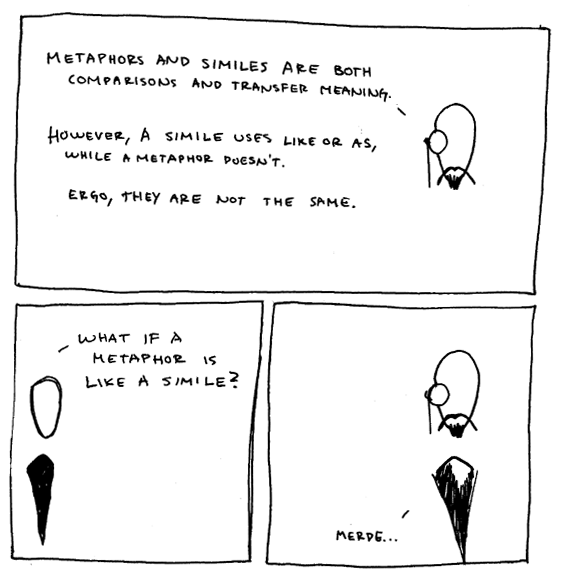 METAPHORS AND SIMILES ARE BOTH
COMPARISONS AND TRANSFER MEANING.
HOWEVER, A SIMILE USES LIKE OR AS,
WHILE A METAPHOR DOESN'T.
ERGO, THEY ARE NOT THE SAME.
WHAT IF A
METAPHOR IS
LIKE A SIMILE?
MERDE...